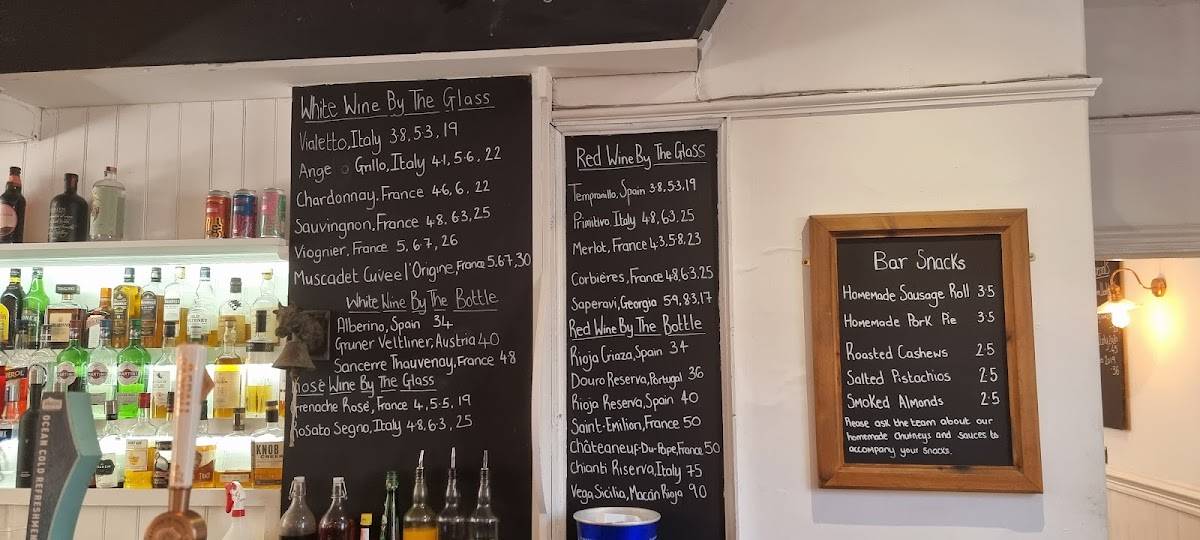 White Wine By The Glass
Vialetto, Italy 3.8, 5.3, 19
Ange Grillo, Italy 4.1, 5.6, 22
Chardonnay, France 4.6, 6, 22
Sauvingnon, France 4.8, 6.3, 25
Viognier, France 5, 6.7, 26
Muscadet Cuvee l'Origine, France 5, 6.7, 30
White Wine By The Bottle
Alberino, Spain 34
Gruner Veltliner, Austria 40
Sancerre Thauvenay, France 48
Rosè Wine By The Glass
Grenache Rosè, France 4, 5.5, 19
Rosato Segno, Italy 4.8, 6.3, 25
Red Wine By The Glass
Tempranillo, Spain 3.8, 5.3, 19
Primitivo Italy 4.8, 6.3, 25
Merlot, France 4.3, 5.8, 23
Corbières, France 4.8, 6.3, 25
Saperavi, Georgia 5.9, 8.3, 17
Red Wine By The Bottle
Rioja Criaza, Spain 34
Douro Reserva, Portugal 36
Rioja Reserva, Spain 40
Saint-Emilion, France 50
Châteaneuf-Du-Pape, France 50
Chianti Riserva, Italy 75
Vega Sicilia, Macán Rioja 90
Bar Snacks
Homemade Sausage Roll 3.5
Homemade Pork Pie 3.5
Roasted Cashews 2.5
Salted Pistachios 2.5
Smoked Almonds 2.5
Please ask the team about our
homemade chutneys and sauces to
accompany your snacks.
OCEAN COLD REFRESHMENT
KNOB
CREEK